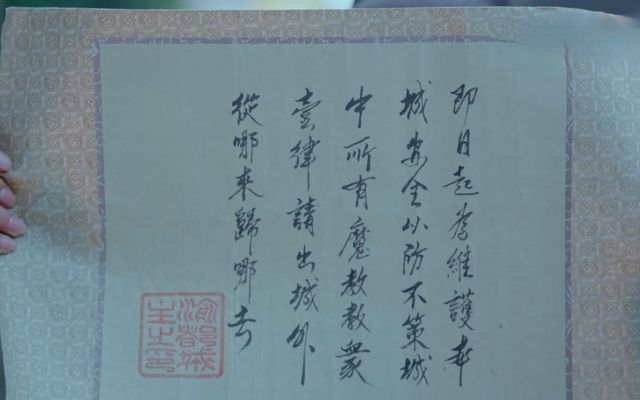 即日起為維護本
城安全以防不策城
中所有魔教教眾
壹律請出城外
從哪來歸哪去
渝都城
主之印